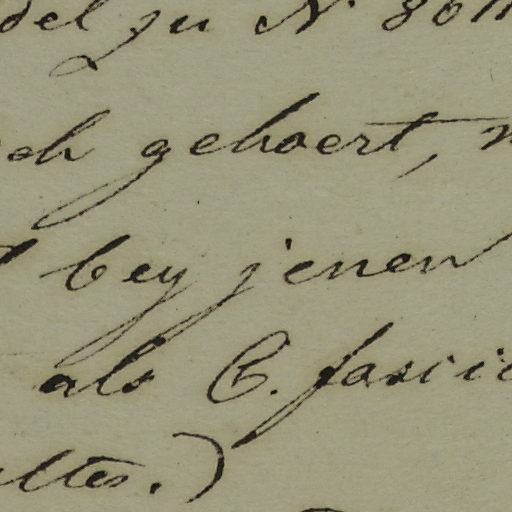 del zu N. 3011
ch gehoert,
bey jenen
als C. fascic
ltes.)